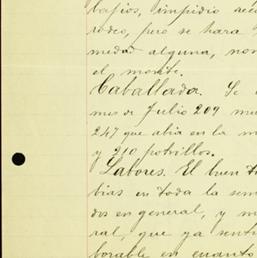 bajios, impidio rec
rodeo, pero se hara
medad alguna, non
el monte.
Caballada. Se
mes de Julio 209 mu
247 que abia en la m
y 210 potrillos.
Labores. El buen
bias en toda la sem
dos en general, y m
ral, que ya senti
borable en cuanto